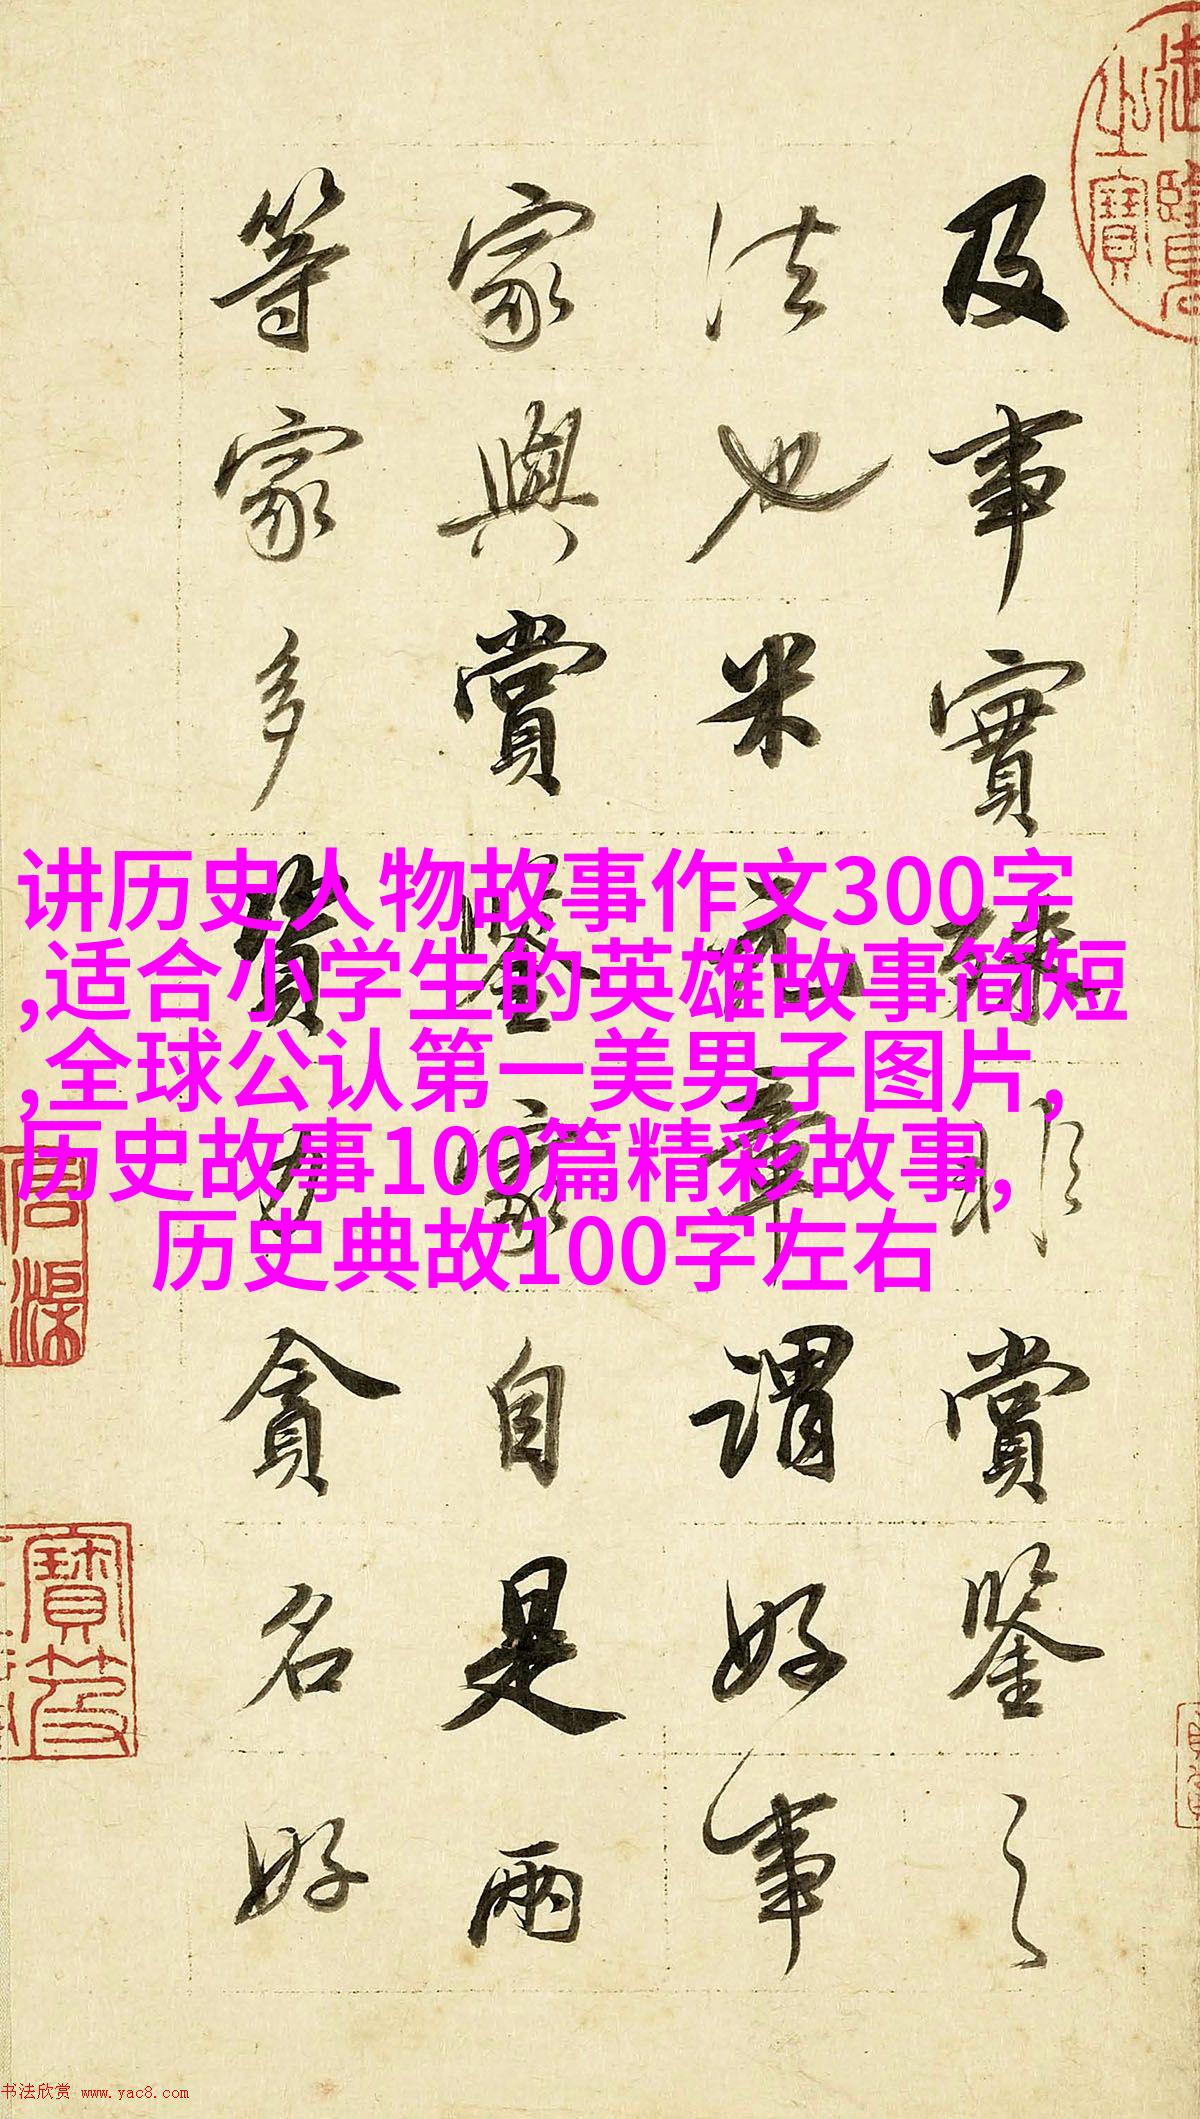 及事實賞鑒之
法也米元章謂好事
家與賞鑒家自是兩
等家多資力貪名好
讲历史人物故事作文300字
,适合小学生的英雄故事简短
,全球公认第一美男子图片,
历史故事100篇精彩故事,
历史典故100字左右
书法欣赏 www.yac8.com